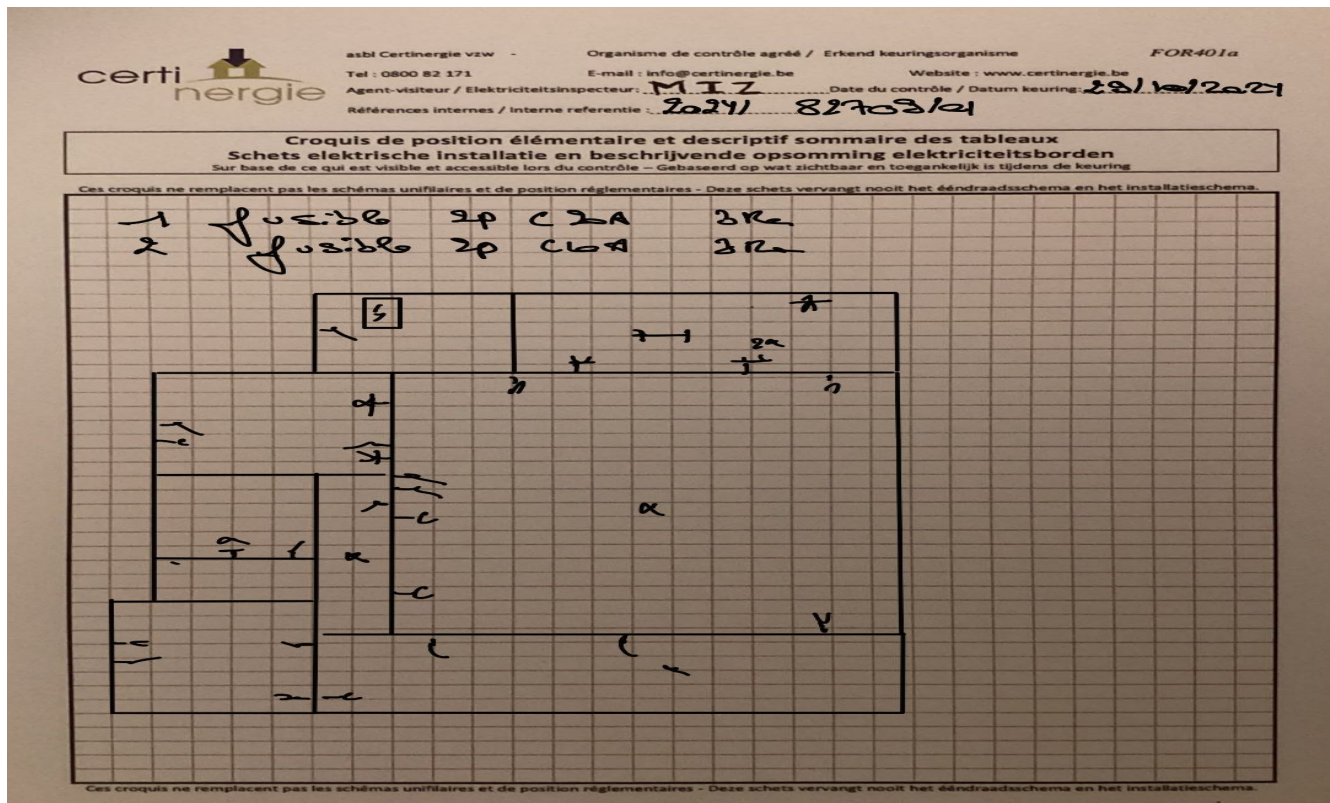 certinergie
asbl Certinergie vzw - Organisme de contrôle agréé / Erkend keuringsorganisme FOR401a
Tel : 0800 82 171 E-mail : info@certinergie.be Website : www.certinergie.be
Agent-visiteur / Elektriciteitsinspecteur: MIZ Date du contrôle / Datum keuring:
Références internes / Interne referentie :
Croquis de position élémentaire et descriptif sommaire des tableaux
Schets elektrische installatie en beschrijvende opsomming elektriciteitsborden
Sur base de ce qui est visible et accessible lors du contrôle – Gebaseerd op wat zichtbaar en toegankelijk is tijdens de keuring
Ces croquis ne remplacent pas les schémas unifilaires et de position réglementaires - Deze schets vervangt nooit het ééndraadsschema en het installatieschema.
1 fusible 2p
2 fusible 2p
Ces croquis ne remplacent pas les schémas unifilaires et de position réglementaires - Deze schets vervangt nooit het ééndraadsschema en het installatieschema.